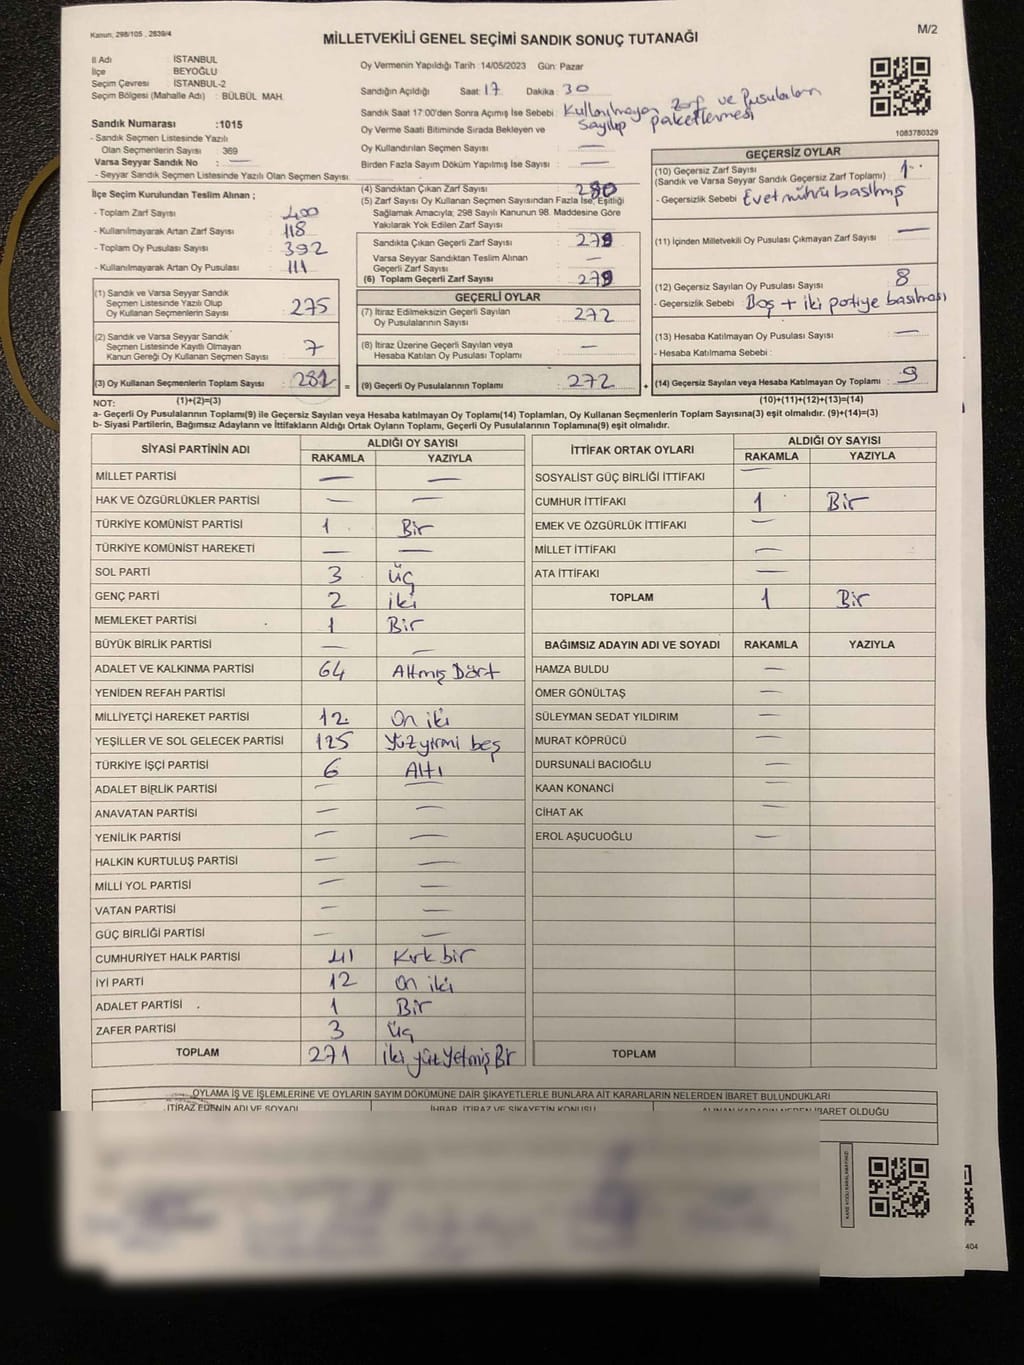 Kanun, 298/105 , 2839/4
M/2
MİLLETVEKİLİ GENEL SEÇİMİ SANDIK SONUÇ TUTANAĞI
İl Adı : İSTANBUL
İlçe : BEYOĞLU
Seçim Çevresi : İSTANBUL-2
Seçim Bölgesi (Mahalle Adı) : BÜLBÜL MAH.
Sandık Numarası :1015
- Sandık Seçmen Listesinde Yazılı
Olan Seçmenlerin Sayısı : 369
Varsa Seyyar Sandık No : —
- Seyyar Sandık Seçmen Listesinde Yazılı Olan Seçmen Sayısı
Oy Vermenin Yapıldığı Tarih :14/05/2023 Gün: Pazar
Sandığın Açıldığı Saat: 17 Dakika : 30
Sandık Saat 17:00'den Sonra Açımış İse Sebebi : Kullanılmayan Zarf ve Pusulaların
sayılıp paketlenmesi
Oy Verme Saati Bitiminde Sırada Bekleyen ve
Oy Kullandırılan Seçmen Sayısı : —
Birden Fazla Sayım Döküm Yapılmış İse Sayısı : —
1083780329
İlçe Seçim Kurulundan Teslim Alınan ;
- Toplam Zarf Sayısı : 400
- Kullanılmayarak Artan Zarf Sayısı : 118
- Toplam Oy Pusulası Sayısı : 392
- Kullanılmayarak Artan Oy Pusulası : 111
(1) Sandık ve Varsa Seyyar Sandık
Seçmen Listesinde Yazılı Olup
Oy Kullanan Seçmenlerin Sayısı : 275
(2) Sandık ve Varsa Seyyar Sandık
Seçmen Listesinde Kayıtlı Olmayan
Kanun Gereği Oy Kullanan Seçmen Sayısı : 7
(3) Oy Kullanan Seçmenlerin Toplam Sayısı : 281 =
(4) Sandıktan Çıkan Zarf Sayısı : 280
(5) Zarf Sayısı Oy Kullanan Seçmen Sayısından Fazla İse, Eşitliği
Sağlamak Amacıyla; 298 Sayılı Kanunun 98. Maddesine Göre
Yakılarak Yok Edilen Zarf Sayısı :
Sandıkta Çıkan Geçerli Zarf Sayısı : 279
Varsa Seyyar Sandıktan Teslim Alınan
Geçerli Zarf Sayısı : —
(6) Toplam Geçerli Zarf Sayısı : 279
GEÇERLİ OYLAR
(7) İtiraz Edilmeksizin Geçerli Sayılan
Oy Pusulalarının Sayısı : 272
(8) İtiraz Üzerine Geçerli Sayılan veya
Hesaba Katılan Oy Pusulası Toplamı : —
(9) Geçerli Oy Pusulalarının Toplamı : 272 +
GEÇERSİZ OYLAR
(10) Geçersiz Zarf Sayısı : 1
(Sandık ve Varsa Seyyar Sandık Geçersiz Zarf Toplamı)
- Geçersizlik Sebebi : Evet mührü basılmış
(11) İçinden Milletvekili Oy Pusulası Çıkmayan Zarf Sayısı : —
(12) Geçersiz Sayılan Oy Pusulası Sayısı : 8
- Geçersizlik Sebebi : Boş + iki partiye basılması
(13) Hesaba Katılmayan Oy Pusulası Sayısı : —
- Hesaba Katılmama Sebebi :
(14) Geçersiz Sayılan veya Hesaba Katılmayan Oy Toplamı : 9
NOT: (1)+(2)=(3) (10)+(11)+(12)+(13)=(14)
a- Geçerli Oy Pusulalarının Toplamı(9) ile Geçersiz Sayılan veya Hesaba katılmayan Oy Toplamı(14) Toplamları, Oy Kullanan Seçmenlerin Toplam Sayısına(3) eşit olmalıdır. (9)+(14)=(3)
b- Siyasi Partilerin, Bağımsız Adayların ve İttifakların Aldığı Ortak Oyların Toplamı, Geçerli Oy Pusulalarının Toplamına(9) eşit olmalıdır.
SİYASİ PARTİNİN ADI ALDIĞI OY SAYISI
RAKAMLA YAZIYLA
MİLLET PARTİSİ — —
HAK VE ÖZGÜRLÜKLER PARTİSİ — —
TÜRKİYE KOMÜNİST PARTİSİ 1 Bir
TÜRKİYE KOMÜNİST HAREKETİ — —
SOL PARTİ 3 üç
GENÇ PARTİ 2 iki
MEMLEKET PARTİSİ 1 Bir
BÜYÜK BİRLİK PARTİSİ — —
ADALET VE KALKINMA PARTİSİ 64 Altmış Dört
YENİDEN REFAH PARTİSİ
MİLLİYETÇİ HAREKET PARTİSİ 12 On iki
YEŞİLLER VE SOL GELECEK PARTİSİ 125 Yüzyirmi beş
TÜRKİYE İŞÇİ PARTİSİ 6 Altı
ADALET BİRLİK PARTİSİ — —
ANAVATAN PARTİSİ — —
YENİLİK PARTİSİ — —
HALKIN KURTULUŞ PARTİSİ — —
MİLLİ YOL PARTİSİ — —
VATAN PARTİSİ — —
GÜÇ BİRLİĞİ PARTİSİ — —
CUMHURİYET HALK PARTİSİ 41 Kırk bir
İYİ PARTİ 12 On iki
ADALET PARTİSİ 1 Bir
ZAFER PARTİSİ 3 Üç
TOPLAM 271 iki yüz Yetmiş Bir
İTTİFAK ORTAK OYLARI ALDIĞI OY SAYISI
RAKAMLA YAZIYLA
SOSYALİST GÜÇ BİRLİĞİ İTTİFAKI —
CUMHUR İTTİFAKI 1 Bir
EMEK VE ÖZGÜRLÜK İTTİFAKI —
MİLLET İTTİFAKI —
ATA İTTİFAKI —
TOPLAM 1 Bir
BAĞIMSIZ ADAYIN ADI VE SOYADI RAKAMLA YAZIYLA
HAMZA BULDU —
ÖMER GÖNÜLTAŞ —
SÜLEYMAN SEDAT YILDIRIM —
MURAT KÖPRÜCÜ —
DURSUNALİ BACIOĞLU —
KAAN KONANCİ —
CİHAT AK —
EROL AŞUCUOĞLU —
TOPLAM
OYLAMA İŞ VE İŞLEMLERİNE VE OYLARIN SAYIM DÖKÜMÜNE DAİR ŞİKAYETLERLE BUNLARA AİT KARARLARIN NELERDEN İBARET BULUNDUKLARI
İTİRAZ EDENİN ADI VE SOYADI İHBAR, İTİRAZ VE ŞİKAYETİN KONUSU ALINAN KARARIN NEDEN İBARET OLDUĞU
404